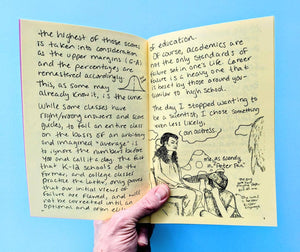 the highest of those scores
is taken into consideration
as the upper margins (G-A)
and the percentages are
remastered accordingly.
This, as some may
already know, is the curve.
While some classes have
right/wrong answers and scan
guides, to fail an entire class
on the basis of an arbitrary
and imagined "average" is
to ignore the numbers before
you and call it a day. The fact
that K-12 schools do the
former, and college classes
practice the latter, only proves
that our initial views of
failure are flawed, and will
not be corrected until an
optional and often
of education.
Of course, academics are
not the only standards of
failure set in one's life. Career
choice is a heavy one that
is beset by those around you-
similar to high school.
The day I stopped wanting to
be a scientist, I chose something
even less likely.
(an actress.)
me, as scientist,
Peter Pan